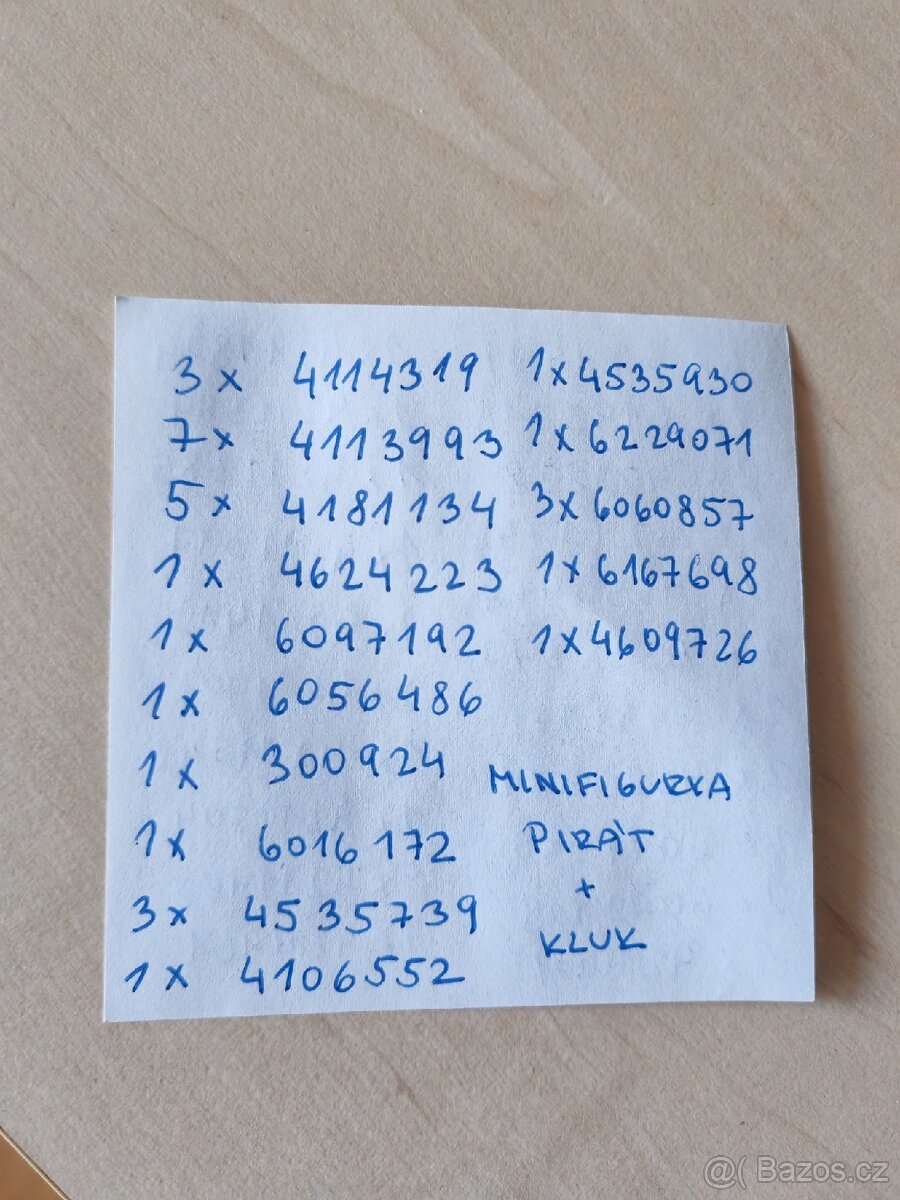 3x 4114319 1x4535930
7x 4113993 1x6229071
5x 4181134 3x6060857
1x 4624223 1x6167698
1x 6097192 1x4609726
1x 6056486
1x 300924
MINIFIGURKA
1x 6016172
PIRÁT
+
3x 4535739
KLUK
1x 4106552
@( Bazos.cz